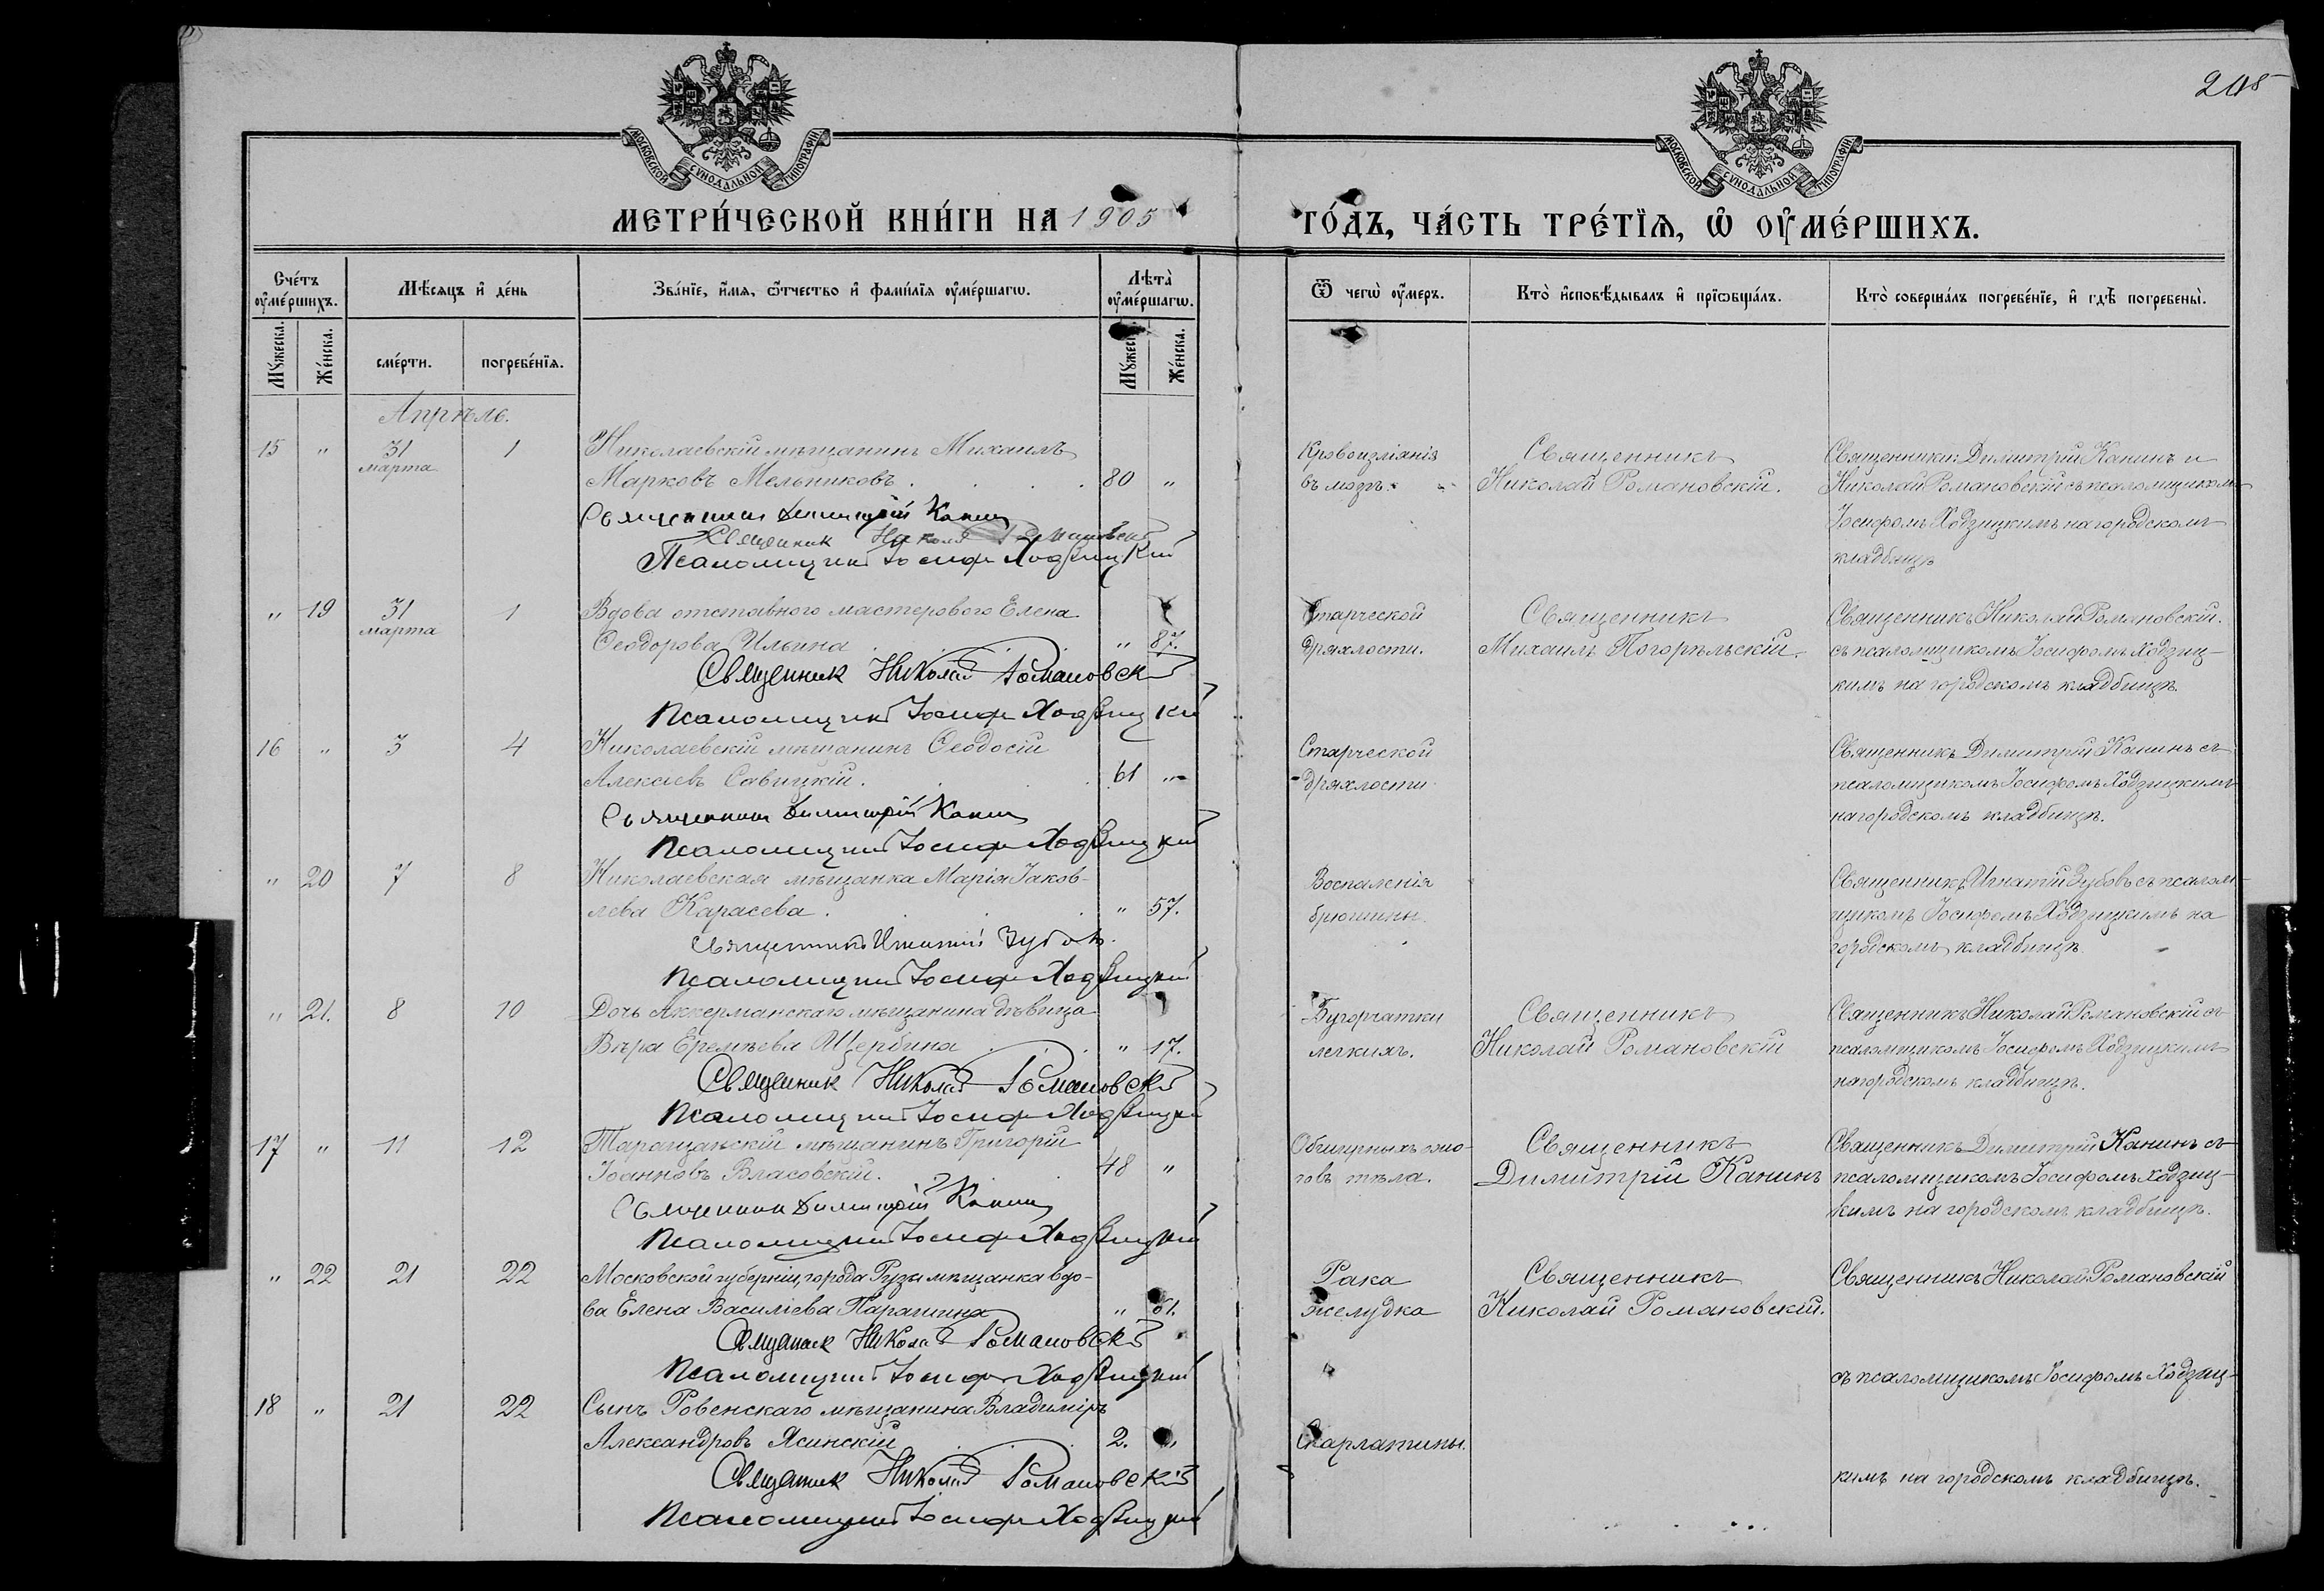 208
МОСКОВСКОЙ СѴНОДАЛЬНОЙ ТИПОГРАФІИ
МОСКОВСКОЙ СѴНОДАЛЬНОЙ ТИПОГРАФІИ
МЕТРИ́ЧЕСКОЙ КНИ́ГИ НА 1905 ГО́ДЪ, ЧА́СТЬ ТРЕ́ТЇѦ, Ѡ҆ ОУ҆МЕ́РШИХЪ.
Сче́тъ оу҆ме́ршихъ.
Мѣ́сяцъ и҆ де́нь
Зва́нїе, и҆́мѧ, ѻ҆́тчество и҆ фами́лїѧ оу҆ме́ршагѡ.
Лѣта̀ оу҆ме́ршагѡ.
Ѿ чегѡ̀ оу҆́меръ.
Кто̀ и҆сповѣ́дывалъ и҆ прїѡбща́лъ.
Кто̀ соверша́лъ погребе́нїе, и҆ гдѣ̀ погребены̀.
Мꙋ́жеска.
Же́нска.
сме́рти.
погребе́нїѧ.
Мꙋ́жес
Же́нска.
Апрѣль.
15 " 31 марта 1
Николаевскій мѣщанинъ Михаилъ
Марковъ Мельниковъ . . . . 80 "
Священникъ Димитрій Канинъ
Священник Николай Романовскій
Псаломщикъ Іосифъ Ходзицкій
Кровоизліянія
въ мозгъ.
Священникъ
Николай Романовскій.
Священники: Димитрій Канинъ и
Николай Романовскій съ псаломщикомъ
Іосифомъ Ходзицкимъ на городскомъ
кладбищѣ
" 19 31 марта 1
Вдова отставного мастерового Елена
Ѳеодорова Ильина . . . . " 87.
Священник Николай Романовскій
Псаломщикъ Іосифъ Ходзицкій
Старческой
дряхлости.
Священникъ
Михаилъ Погорѣльскій.
Священникъ Николай Романовскій.
съ псаломщикомъ Іосифомъ Ходзиц-
кимъ на городскомъ кладбищѣ.
16 " 3 4
Николаевскій мѣщанинъ Ѳеодосій
Алексѣевъ Савицкій. . . . 61 "
Священникъ Димитрій Канинъ
Псаломщикъ Іосифъ Ходзицкій
Старческой
дряхлости.
Священникъ Димитрій Канинъ съ
псаломщикомъ Іосифомъ Ходзицкимъ
на городскомъ кладбищѣ.
" 20 7 8
Николаевская мѣщанка Марія Іаков-
лева Карасева . . . . " 57.
Священникъ Игнатій Зубовъ.
Псаломщикъ Іосифъ Ходзицкій
Воспаленія
брюшины.
Священникъ Игнатій Зубовъ съ псалом-
щикомъ Іосифомъ Ходзицкимъ на
городскомъ кладбищѣ.
" 21. 8 10
Дочь Аккерманскаго мѣщанина дѣвица
Вѣра Еремѣева Щербина . . . " 17.
Священник Николай Романовскій
Псаломщикъ Іосифъ Ходзицкій
Бугорчатки
легкихъ.
Священникъ
Николай Романовскій
Священникъ Николай Романовскій съ
псаломщикомъ Іосифомъ Ходзицкимъ
на городскомъ кладбищѣ.
17 " 11 12
Таращанскій мѣщанинъ Григорій
Іоанновъ Власовскій. . . . 48 "
Священникъ Димитрій Канинъ
Псаломщикъ Іосифъ Ходзицкій
Обширныхъ ожо-
говъ тѣла.
Священникъ
Димитрій Канинъ
Священникъ Димитрій Канинъ съ
псаломщикомъ Іосифомъ Ходзиц-
кимъ на городскомъ кладбищѣ.
" 22 21 22
Московской губерніи, города Рузы мѣщанка вдо-
ва Елена Василіева Парашина " 61.
Священник Николай Романовскій
Псаломщикъ Іосифъ Ходзицкій
Рака
желудка
Священникъ
Николай Романовскій.
Священникъ Николай Романовскій
съ псаломщикомъ Іосифомъ Ходзиц-
18 " 21 22
Сынъ Ровенскаго мѣщанина Владиміръ
Александровъ Ясинскій . . . 2. "
Священник Николай Романовскій
Псаломщикъ Іосифъ Ходзицкій
Скарлатины.
кимъ на городскомъ кладбищѣ.